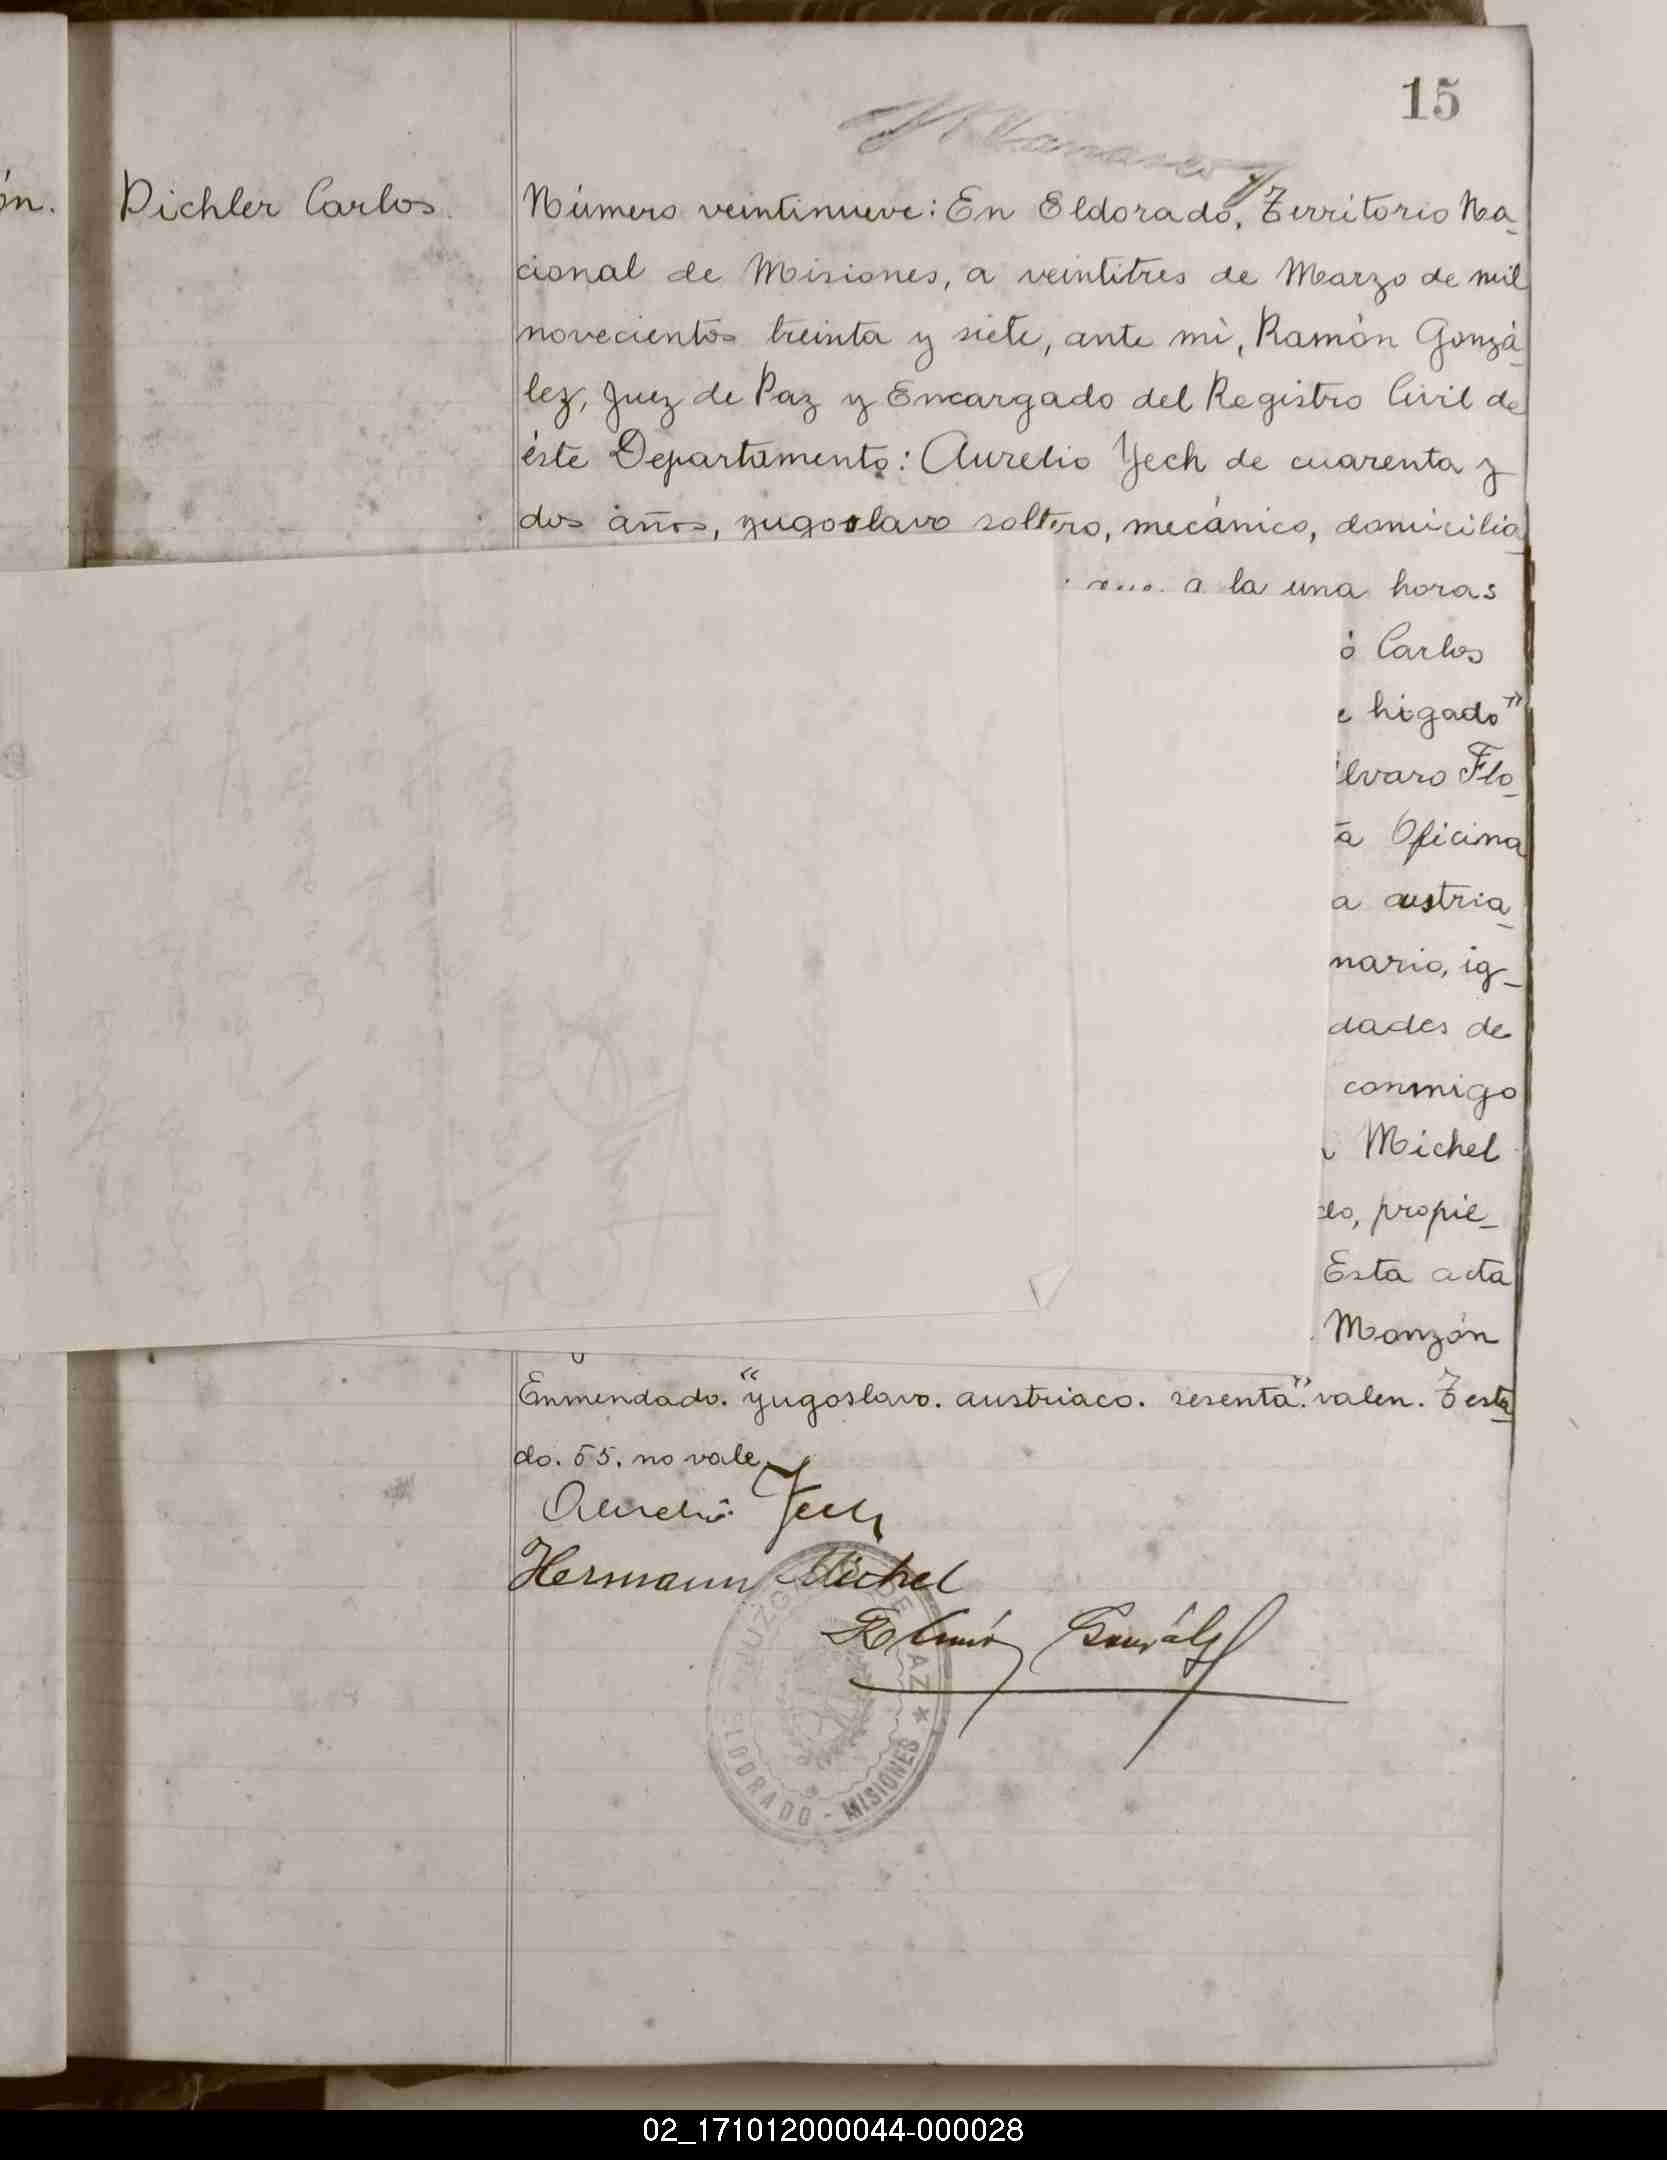 15
ón.
Pichler Carlos
Número veintinueve: En Eldorado, Territorio Na-
cional de Misiones, a veintitres de Marzo de mil
novecientos treinta y siete, ante mi, Ramón Gonzá-
lez, Juez de Paz y Encargado del Registro Civil de
éste Departamento: Aurelio Yech de cuarenta y
dos años, yugoslavo soltero, mecánico, domicilia-
a la una horas
ó Carlos
e higado"
lvaro Flo-
ta Oficina
a austria-
nario, ig-
dades de
conmigo
Michel
do, propie-
Esta acta
Monzón
Enmendado. "yugoslavo. austriaco. sesenta". valen. Testa-
do. 55. no vale.
Aurelio Yech
Hermann Michel
Ramón González
JUZGADO DE PAZ ★
ELDORADO - MISIONES
02_171012000044-000028